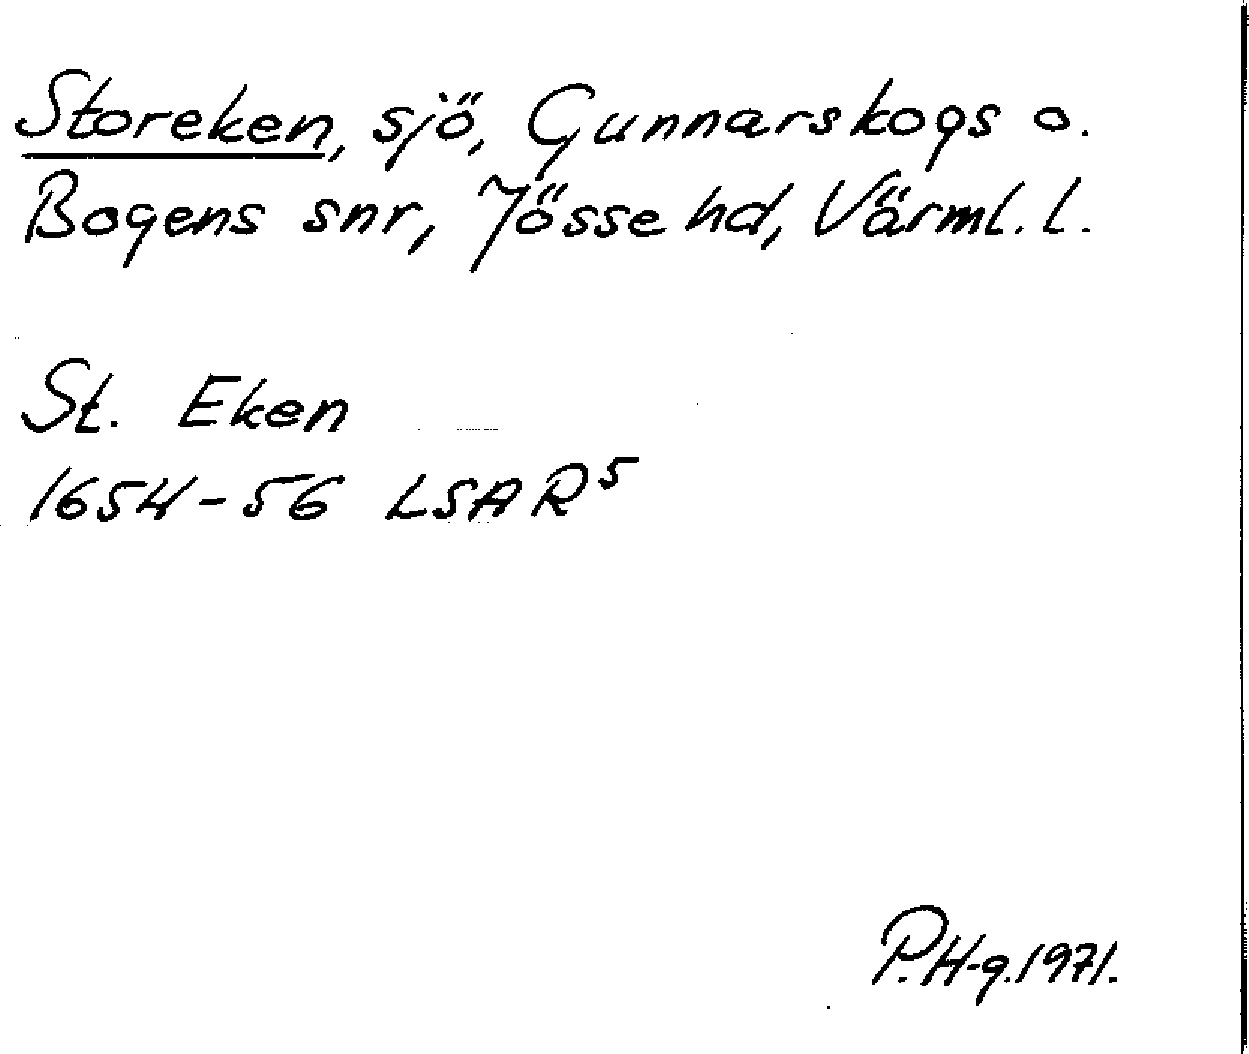 Storeken, sjö, Gunnarskogs o.
Bogens snr, Jösse hd, Värml. l.
St. Eken
1654-56 LSA R⁵
P.H-g.1971.